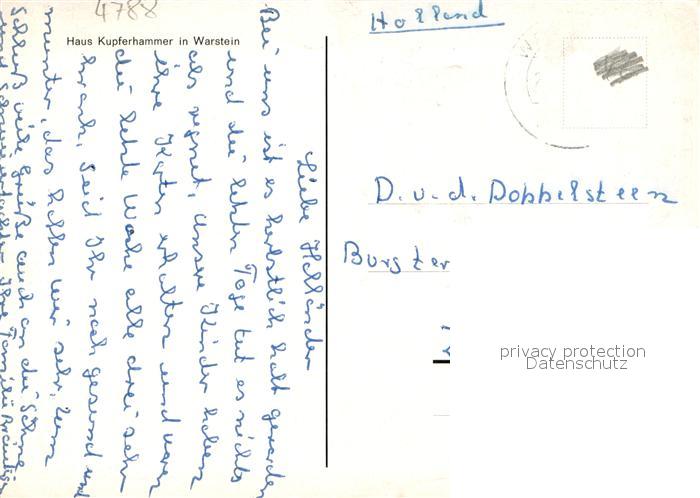 4788
Haus Kupferhammer in Warstein
Liebe Holländer
Bei uns ist es herbstlich kalt geworden
und die letzten Tage tut es nichts
als regnet, unsere Kinder haben
ihre Karten erhalten und waren
die letzte Woche alle drei sehr
krank. Seid Ihr noch gesund und
munter, das hoffen wir sehr. Zum
Schluß viele Grüße auch an die Söhne
und Schwiegertöchter Ihre Familie
Holland
D. v. d. Dobbelsteen
Burg ter
privacy protection
Datenschutz